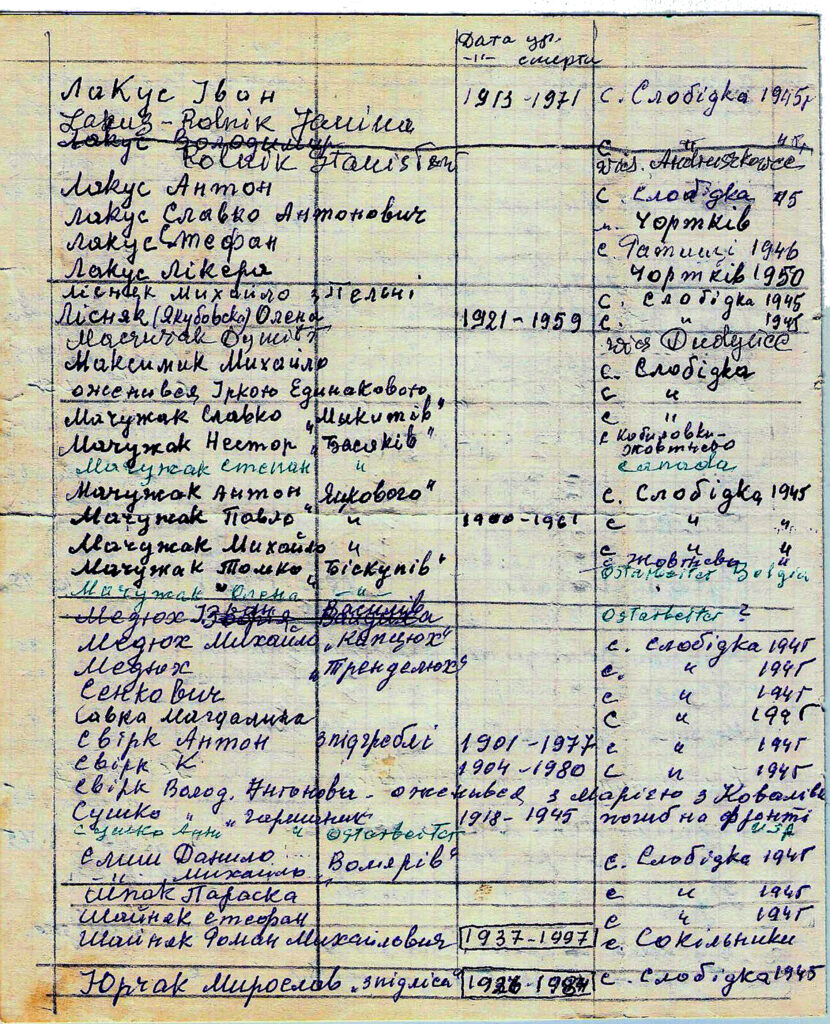 Дата ур.
-"- смерти
Лакус Іван 1913-1971 с. Слобідка 1945р
Lakus-Rolnik Janina
Лакус Володимир с. "
Rolnik Stanisław wieś. Andruszkowce
Лакус Антон с. Слобідка 45
Лакус Славко Антонович м. Чортків
Лакус Стефан с. 1946
Лакус Лікера Чортків 1950
Лісняк Михайло з Пельні с. Слобідка 1945
Лісняк (Якубовска) Олена 1921-1959 с. " 1945
wieś
Максимик Михайло с. Слобідка
оженився Іркою Единаковою с "
Мачужак Славко "Микитів" с "
Мачужак Нестор "Басяків" с
жовтнево
Мачужак Степан " Canada
Мачужак Антон Яцкового" с. Слобідка 1945
Мачужак Павло " с " "
Мачужак Михайло " с " "
Мачужак Томко "Біскупів" с Жовтневе "
Мачужак Олена -"- Ostarbeiter Belgia
Медюх Іван Василів Ostarbeiter ?
Медюх Михайло "Капцюх" с. Слобідка 1945
Медюх "Тренделюх" с. " 1945
Сенкович с " 1945
Савка Магдалина с " 1945
Свірк Антон з підгреблі 1901-1977 с " 1945
Свірк К. 1904-1980 с " 1945
Свірк Волод. Антонович - оженився з Марією з Ковалів
Сушко " 1918-1945 погиб на фронті
Сушко Анн " Ostarbeiter
Данило "Волярів" с. Слобідка 1945
Михайло
Параска с " 1945
Шайняк Стефан с " 1945
Шайняк Роман Михайлович 1937-1997 с. Сокільники
Юрчак Мирослав "з підліса" с. Слобідка 1945